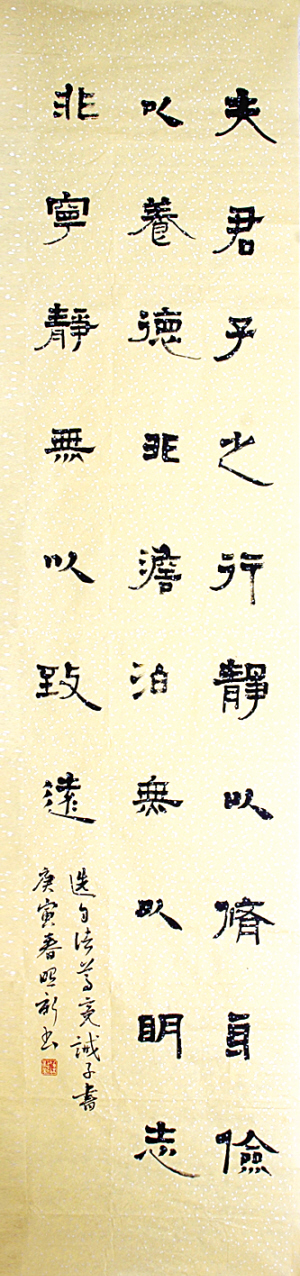 夫君子之行靜以脩身儉
以養德非澹泊無以明志
非寧靜無以致遠
选自诸葛亮誡子書
庚寅春照新书